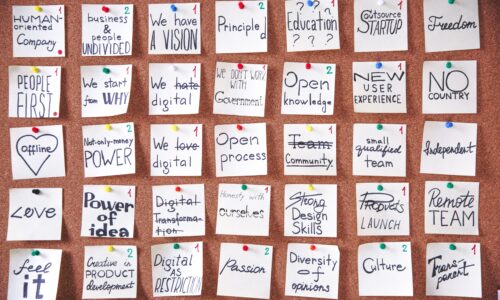 HUMAN- 1
oriented
Company_
business 2
& people
UNDIVIDED
We have
A VISION
2
Education
? ? ?
Outsource
STARTUP
Freedom
PEOPLE 1
FIRST_
We start 1
from WHY
We hate
digital
WE DON'T WORK 1
with
Government_
Open 2
knowledge
NEW 2
USER
EXPERIENCE
NO
COUNTRY
offline
Not-only-money 2
POWER
We love 1
digital
Open
process
Team 1
Community_
small 2
qualified
team
Independent
Love
Power 2
of idea
Digital
Transforma-
tion
Honesty with 1
ourselves
Strong
Design
Skills
1
LAUNCH
Remote
TEAM
feel
it
Creative is 2
PRODUCT
development
Digital 1
AS
RESTRICTION
Passion 2
Diversity
of
opinions
Culture 2
Trans-
parent